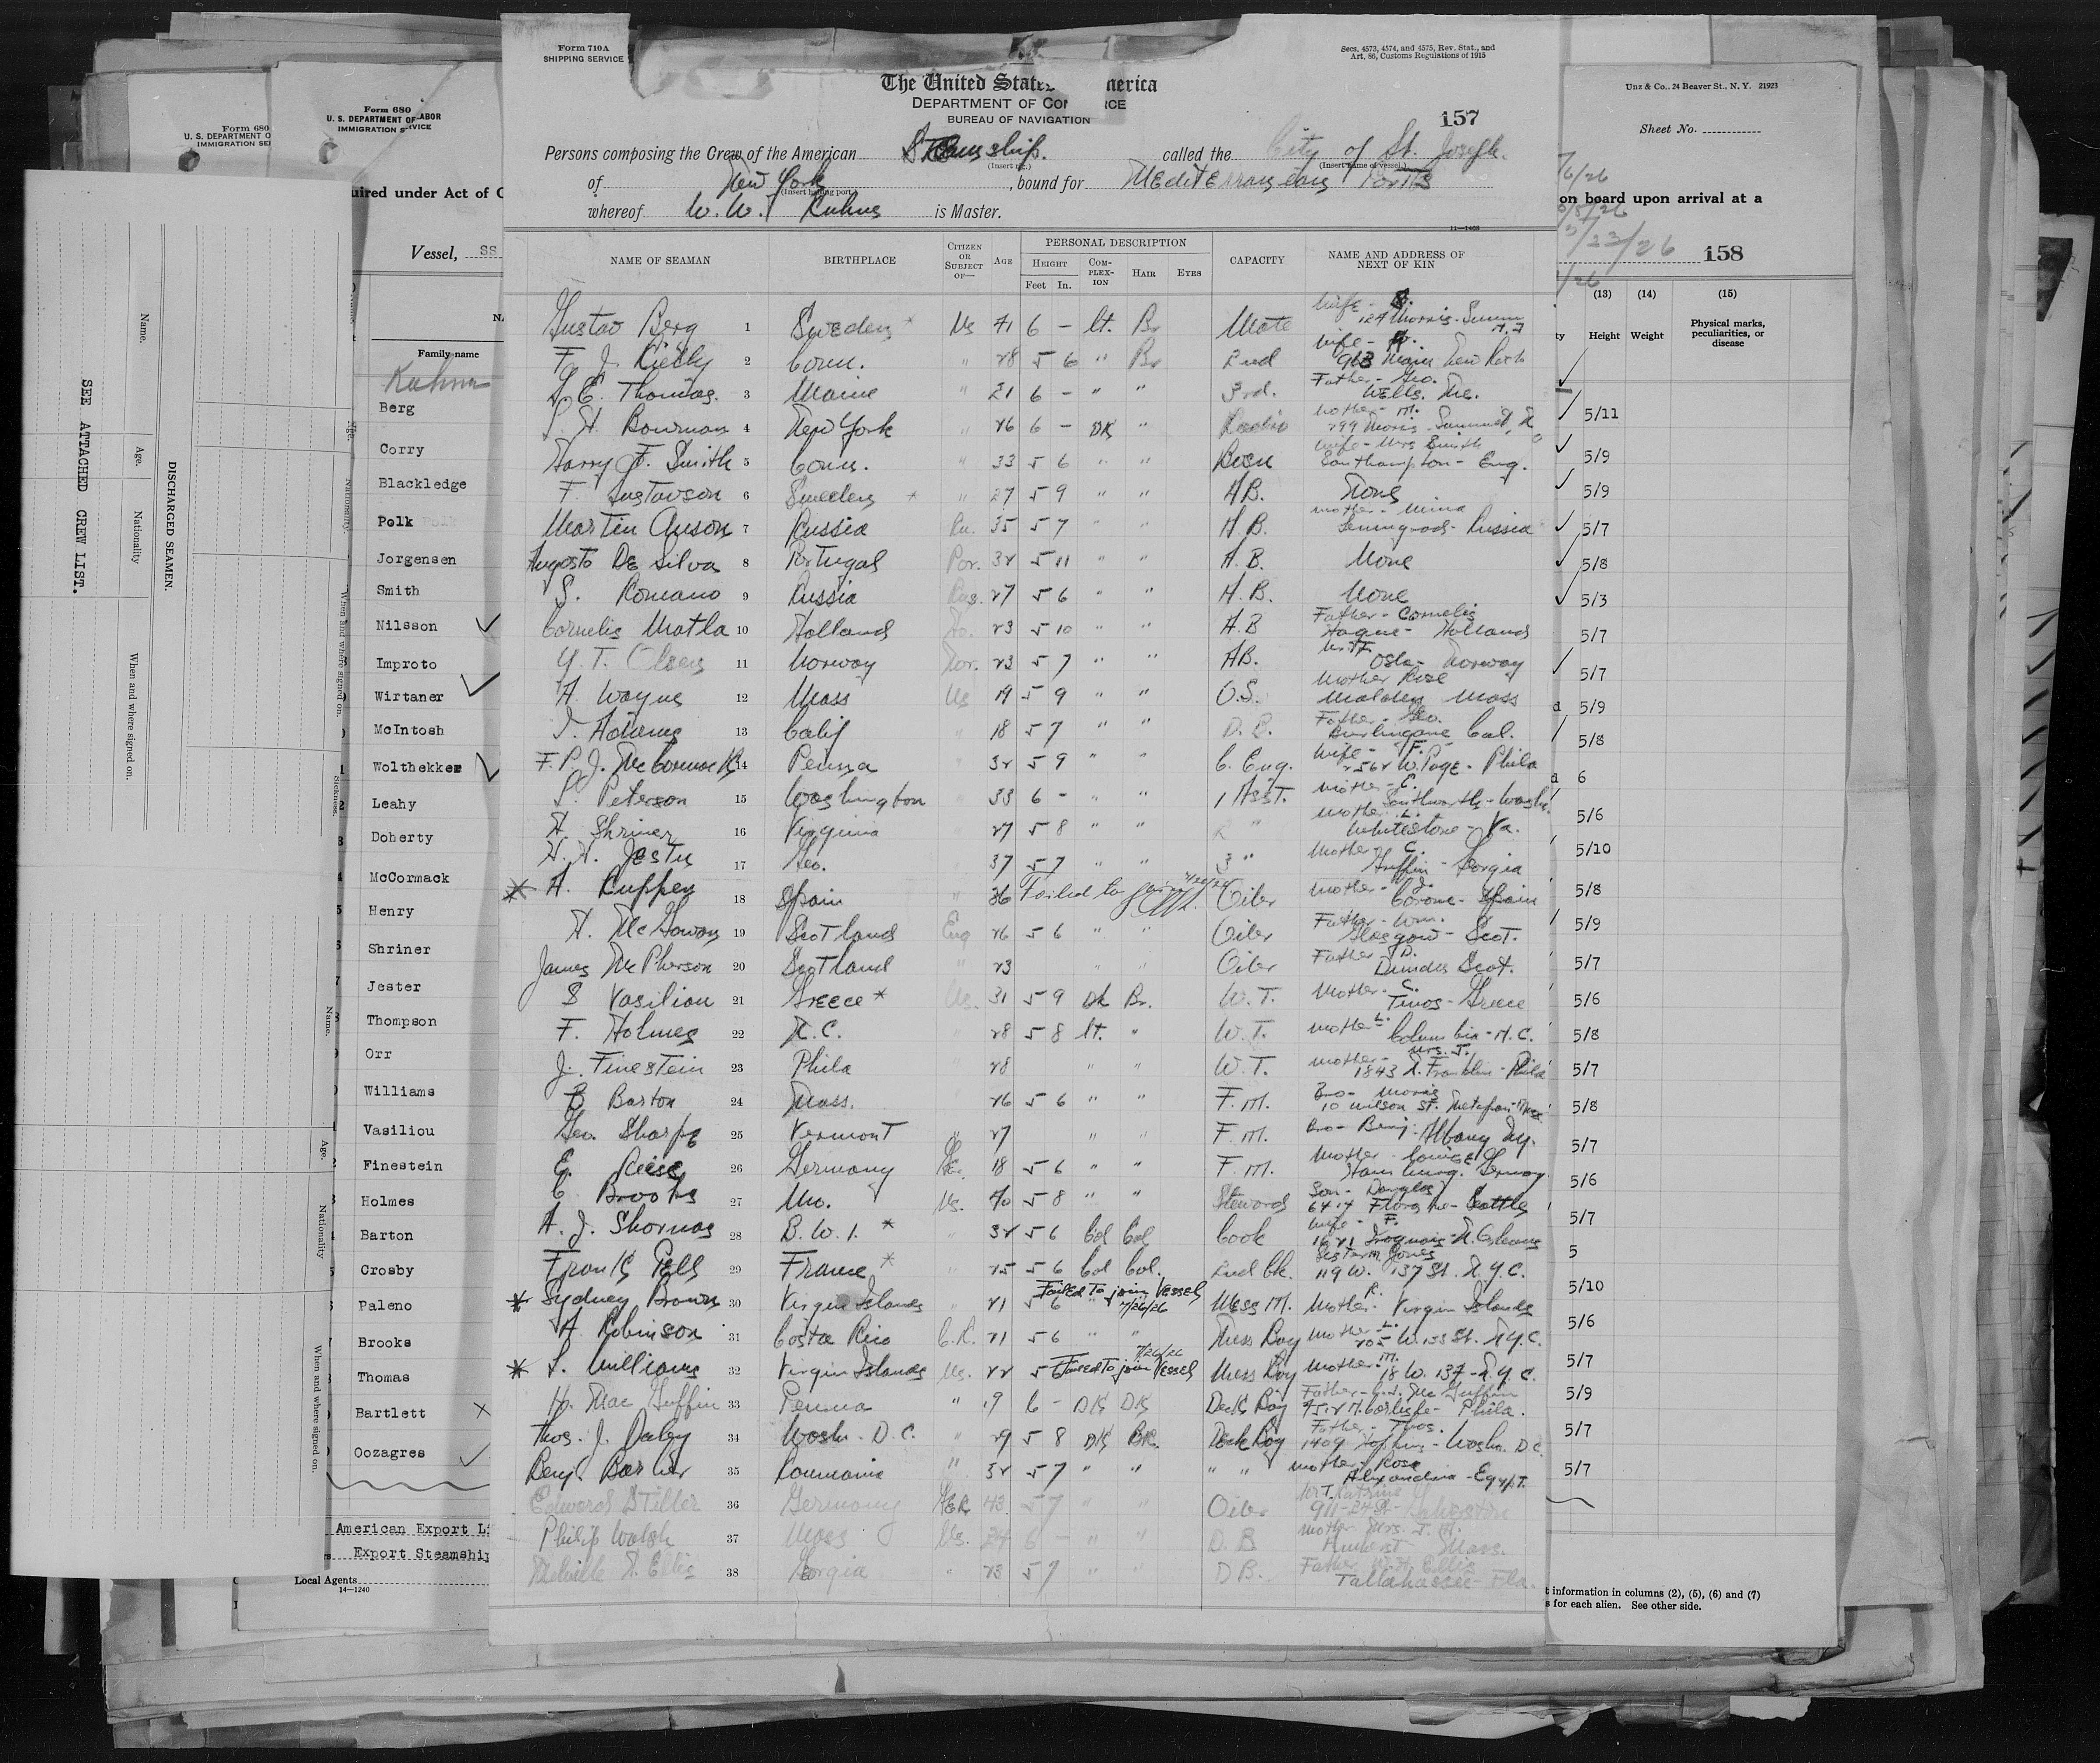 Form 710A
SHIPPING SERVICE
Secs. 4573, 4574, and 4575, Rev. Stat., and
Art. 86, Customs Regulations of 1915
The United State merica
DEPARTMENT OF CO CE
BUREAU OF NAVIGATION
157
Persons composing the Crew of the American Steamship. called the City of St. Joseph.
(Insert rig.) (Insert name of vessel.)
of New York , bound for Mediterranean Ports
(Insert hailing port.)
whereof W. W. Kuhns is Master.
11—1408
NAME OF SEAMAN BIRTHPLACE CITIZEN OR SUBJECT OF— AGE PERSONAL DESCRIPTION CAPACITY NAME AND ADDRESS OF NEXT OF KIN
HEIGHT Feet In. COMPLEXION HAIR EYES
Gustav Berg 1 Sweden * Us 41 6 - lt. Br Mate Wife - 124 Morris - Summ N.J
F. J. 2 Conn. " 28 5 6 " Br 2nd Wife - 963 Main New Roch
E. Thomas. 3 Maine " 21 6 - " " 3rd. Father - Geo. Wells. Me.
H. Bowman 4 New York " 26 6 - DK " Radio Mother - M. 299 Morris - Summit, N
Harry F. Smith 5 Conn. " 33 5 6 " " Wife - Mrs Smith Southampton - Eng.
F. Gustavson 6 Sweden * " 27 5 9 " " AB. None
Martin Anson 7 Russia Ru. 35 5 7 " " A B. Mother - Mina Leningrad - Russia
Augosto De Silva 8 Portugal Por. 32 5 11 " " A. B. None
S. Romano 9 Russia Rus. 27 5 6 " " A. B. None
Cornelis Matla 10 Holland Ho. 23 5 10 " " A. B Father - Cornelis Hague - Holland
T. Olsen 11 Norway Nor. 23 5 7 " " AB. Oslo - Norway
A. Wayne 12 Mass Us 19 5 9 " " O.S. Mother Rose Malden Mass
J. Adams 13 Calif " 18 5 7 " " D. B. Father - Geo. Burlingame Cal.
F. P. J. McCormack 14 Penna " 32 5 9 " " C. Eng. Wife - F. 2562 W. Page - Phila
S. Peterson 15 Washington " 33 6 - " " 1 Asst. Mother - C. Southworth - Wash.
A. Shriner 16 Virginia 27 5 8 " " 2 " Mother - L. Whitestone - Va.
H. H. Jester 17 Geo. 37 5 7 " " 3 " Mother - C. Griffin - Georgia
* A. Ruppen 18 Spain " 36 Failed to join Oiler Mother - J. Corone - Spain
H. McGowan 19 Scotland Eng 26 5 6 " " Oiler Father - Wm. Glasgow - Scot.
James McPherson 20 Scotland " 23 " " Oiler Father D. Dundee Scot.
S Vasiliou 21 Greece * Us. 31 5 9 Dk Br. W. T. Mother - C. Tinos - Greece
F. Holmes 22 N. C. 28 5 8 lt. " W. T. Mother L. Columbia - N. C.
J. Finestein 23 Phila 28 " " W. T. Mother - Mrs. J. 1843 N. Franklin - Phila
B Barton 24 Mass. 26 5 6 " " F. M. Bro - Morris 10 Wilson St. Mattapan Mass.
Geo. Sharpe 25 Vermont " 27 " " F. M. Bro - Benj. Albany Ny.
E. Reise 26 Germany Ge. 18 5 6 " " F. M. Mother - Louise Hamburg. Germany
C. Brooks 27 Mo. Us. 40 5 8 " " Steward Son - Douglas 6414 Flora Ave - Seattle
A. J. Shornas 28 B. W. I. * " 32 5 6 Col Col Cook Wife - F. 1621 Iroquois - N. Orleans
Frank Pell 29 France * " 25 5 6 Col Col. 2nd Ck. Sister M. Jones 119 W. 137 St. N.Y.C.
* Sydney Brown 30 Virgin Islands " 21 5 6 Failed to join Vessel 7/26/26 Mess M. Mother - R. Virgin Islands
A Robinson 31 Costa Rico C.R. 21 5 6 " " Mess Boy Mother - L. 205 W. 133 St. N.Y.C.
* S. Williams 32 Virgin Islands Us. 22 5 6 Failed to join Vessel 7/26/26 Mess Boy Mother - M. 18 W. 137 - N.Y.C.
H. MacGuffin 33 Penna " 19 6 - DK DK Deck Boy Father - Mc Guffin N. Carlisle - Phila.
Thos. J. Daley 34 Wash - D. C. " 29 5 8 DK BR. Deck Boy Father - Thos. 1409 Hopkins - Wash. D C.
Benj. Barber 35 Roumania " 32 5 7 " " " " Mother - Rose Alexandria - Egypt.
Edward Stiller 36 Germany GER 43 5 7 " " Oiler 911 - 24 St - Galveston
Philip Walsh 37 Mass Us. 24 6 - " " D. B Mother Mrs. Amherst - Mass.
Melville N. Ellis 38 Georgia " 23 5 7 " " D B. Father W. H. Ellis Tallahassee - Fla.
Form 680
U. S. DEPARTMENT OF LABOR
IMMIGRATION SERVICE
Form 680
U. S. DEPARTMENT O
IMMIGRATION SE
uired under Act of C
Vessel, SS
Family name
Kuhns
Berg
Corry
Blackledge
Polk
Jorgensen
Smith
Nilsson
Improto
Wirtaner
McIntosh
Wolthekker
Leahy
Doherty
McCormack
Henry
Shriner
Jester
Thompson
Orr
Williams
Vasiliou
Finestein
Holmes
Barton
Crosby
Paleno
Brooks
Thomas
Bartlett
Oozagres
American Export Li
Export Steamship
Local Agents
14—1240
SEE ATTACHED CREW LIST.
DISCHARGED SEAMEN.
Name.
Age.
Nationality
When and where signed on.
Age.
Nationality.
When and where signed on.
Sickness.
Name.
Age.
Nationality
When and where signed on.
Unz & Co., 24 Beaver St., N. Y. 21923
Sheet No.
6/26
on board upon arrival at a
/23/26
158
/26
(13) (14) (15)
Height Weight Physical marks, peculiarities, or disease
5/11
5/9
5/9
5/7
5/8
5/3
5/7
5/7
5/9
5/8
6
5/6
5/10
5/8
5/9
5/7
5/6
5/8
5/7
5/8
5/7
5/6
5/7
5
5/10
5/6
5/7
5/9
5/7
5/7
t information in columns (2), (5), (6) and (7)
s for each alien. See other side.